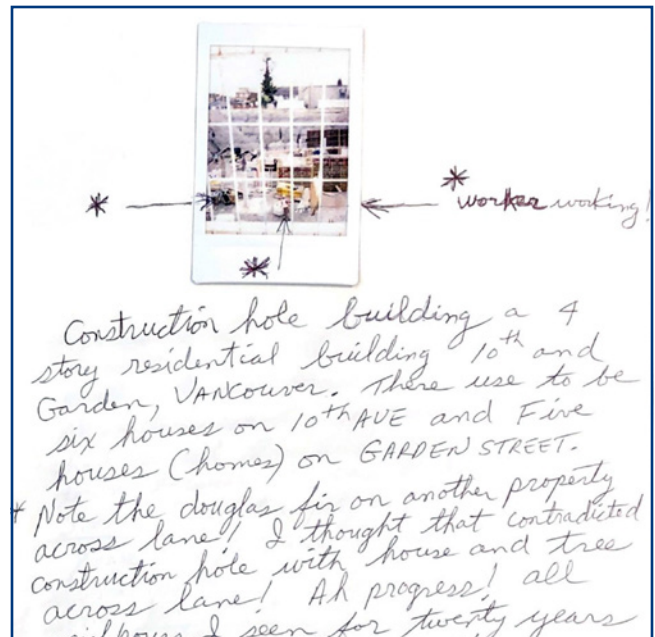 *
* worker working!
*
Construction hole building a 4
story residential building 10th and
Garden, VANCOUVER. There use to be
six houses on 10th AVE and Five
houses (homes) on GARDEN STREET.
* Note the douglas fir on another property
across lane! I thought that contradicted
construction hole with house and tree
across lane! Ah progress! all
I seen for twenty years